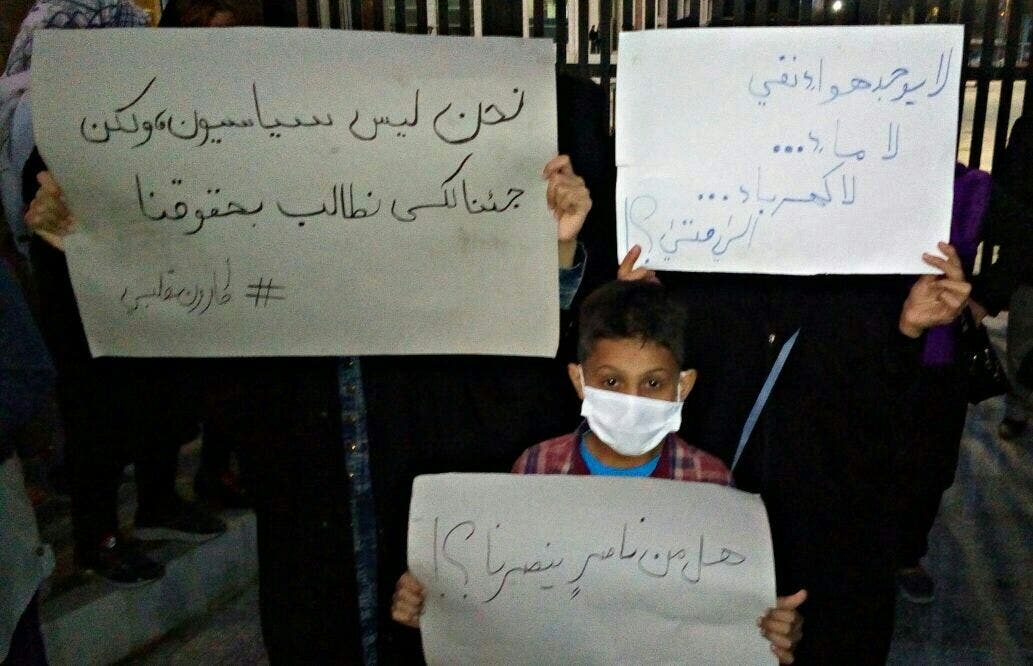 نحن ليس سياسيون، ولكن
جئنا لكي نطالب بحقوقنا
#كارون_قلبي
لا يوجد هواء نقي
لا ماء...
لا كهرباء...
إلى متى؟!
هل من ناصرٍ ينصرنا؟!